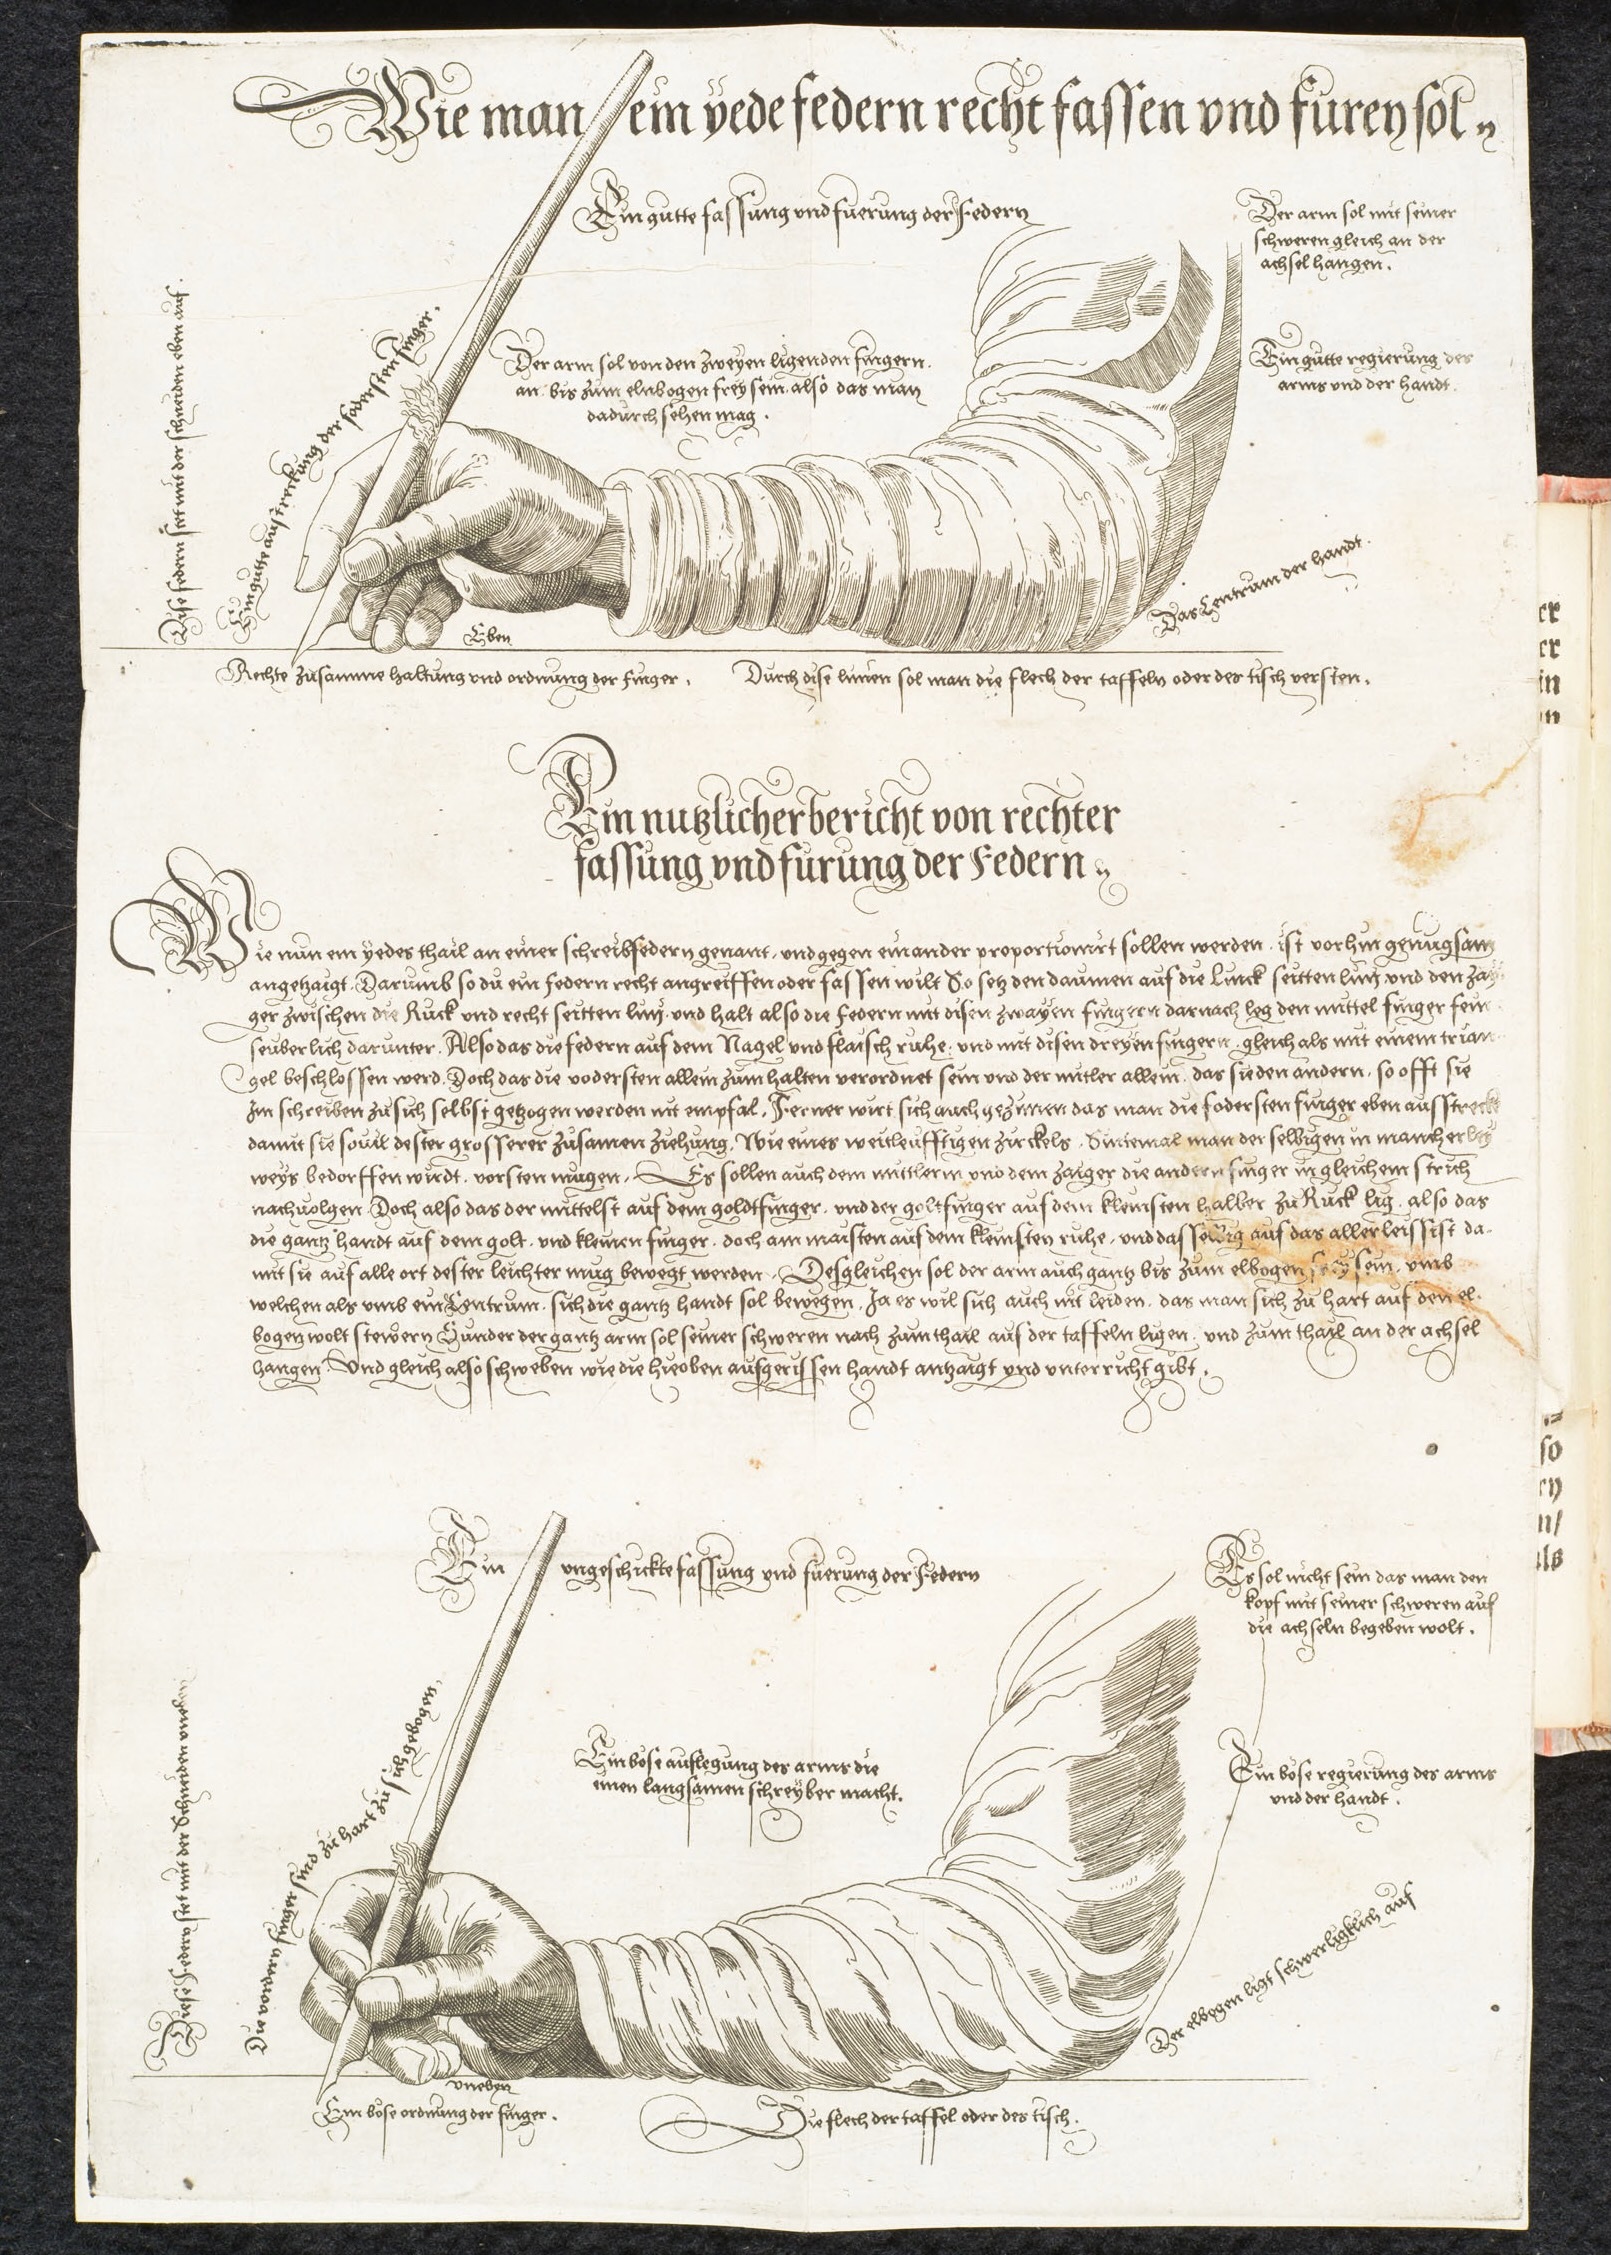 Wie man ein yede federn recht fassen vnd furen sol
Ein gutte fassung vnd fuerung der Federn
Der arm sol mit seiner
schweren gleich an der
achsel hangen.
Der arm sol von den zweyen ligenden fingern
an bis zum elnbogen frey sein also das man
dadurch sehen mag.
Ein gutte regierung des
arms vnd der handt.
Dise federn stet mit der schneiden eben auf.
Ein gutte austreckung der fodersten finger.
Das Centrum der handt.
Eben
Rechte zusamme haltung vnd ordnung der finger.
Durch dise linien sol man die flech der taffeln oder des tisch versten.
Ein nutzlicher bericht von rechter
fassung vnd furung der Federn
Wie nun ein yedes thail an einer schreibfedern genant, vnd gegen einander proportionirt sollen werden, ist vorhin genugsam
angetzaigt. Darumb so du ein federn recht angreiffen oder fassen wilt So setz den daumen auf die Linck seitten liny vnd den zay
ger zwischen die Ruck vnd recht seitten liny, vnd halt also die Federn mit disen zwayen fingern darnach leg den mittel finger fein
seuberlich darunter. Also das die federn auf dem Nagel vnd flaisch ruhe, vnd mit disen dreyen fingern, gleich als mit einem trian
gel beschlossen werd. Doch das die vodersten allein zum halten verordnet sein vnd der mitler allein, das sie den andern, so offt sie
im schreiben zu sich selbst getzogen werden nit empfal. Ferner wirt sich auch gezimen das man die fodersten finger eben ausstreck
damit sie souil dester grosserer zusamen ziehung, Wie eines weitleufftigen zirckels, Sintemal man der selbigen in mancherley
weys bedorffen wirdt, vorsten mugen. Es sollen auch dem mittlern vnd dem zaiger die andern finger in gleichem strich
nachuolgen. Doch also das der mittelst auf dem goldtfinger, vnd der goltfinger auf dem kleinsten halber zu Ruck lig, also das
die gantz handt auf dem golt, vnd kleinen finger, doch am maisten auf dem kleinsten ruhe, vnd dasselbig auf das aller leissist da
mit sie auf alle ort dester leichter mug bewegt werden. Desgleichen sol der arm auch gantz bis zum elbogen frey sein, vmb
welchen als vmb ein Centrum, sich die gantz handt sol bewegen. Ja es wil sich auch nit leiden, das man sich zu hart auf den el
bogen wolt stewern Sunder der gantz arm sol seiner schweren nach zum thail auf der taffeln ligen, vnd zum thail an der achsel
hangen. Vnd gleich also schweben wie die hieoben aufgerissen handt antzaigt vnd vnterricht gibt.
Ein vngeschickte fassung vnd fuerung der Federn
Es sol nicht sein das man den
kopf mit seiner schweren auf
die achseln begeben wolt.
Ein bose auflegung des arms die
einen langsamen schreyber macht.
Ein bose regierung des arms
vnd der handt.
Diese Federn stet mit der Schneiden vneben
Die vordern finger sind zu hart zu sich gebogen.
Der elbogen ligt schwerligklich auf
vneben
Ein bose ordnung der finger.
Die flech der taffel oder des tisch.
er
er
in
n
so
en
n/
als